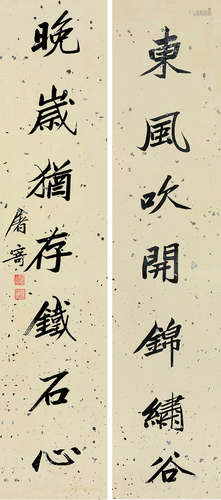 東風吹開錦繡谷
晚歲猶存鐵石心
屠寄